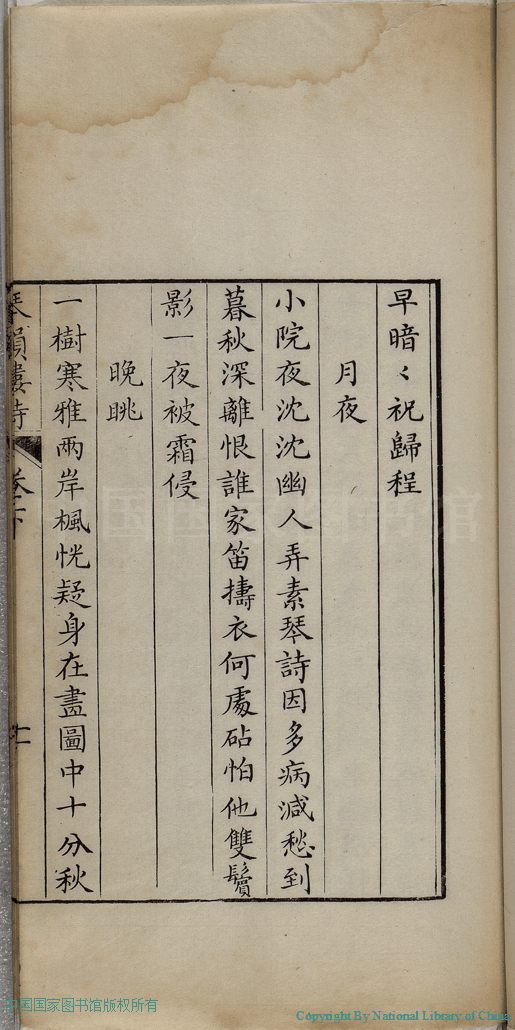 早暗〻祝歸程
月夜
小院夜沈沈幽人弄素琴詩因多病減愁到
暮秋深離恨誰家笛擣衣何處砧怕他雙鬢
影一夜被霜侵
晚眺
一樹寒雅兩岸楓恍疑身在畫圖中十分秋
琴韻樓詩 卷下
中国国家图书馆版权所有
Copyright By National Library of China